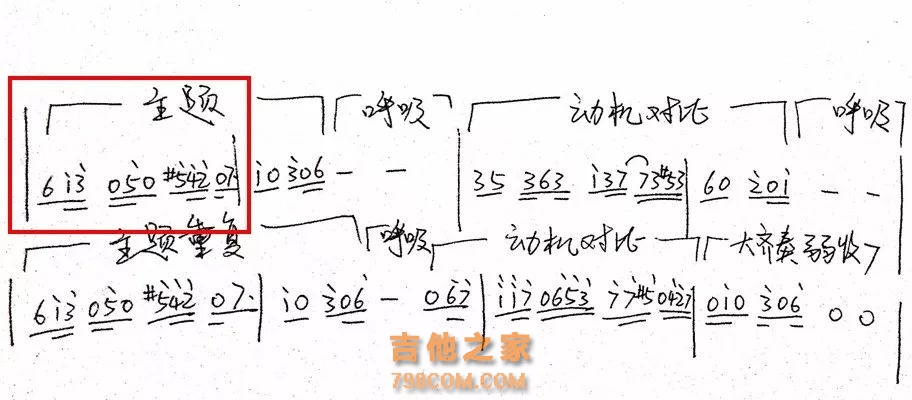 主题 呼吸 动机对比 呼吸
6 1̇ 3̇ 0 5̇ 0 #5̇ 4̇ 2̇ 0 7· | 1̇ 0 3̇ 0 6 - - | 3 5 3 6 3 1̇ 3 7 7 3 #5 3 | 6 0 2̇ 0 1̇ - - |
主题重复 呼吸 动机对比 大齐奏弱收
| 6 1̇ 3̇ 0 5̇ 0 #5̇ 4̇ 2̇ 0 7· | 1̇ 0 3̇ 0 6 - 0 6 7̇ | 1̇ 1̇ 7̇ 0 6 5̇ 3̇ 7̇ 7̇ #5 0 4̇ 2̇ 7 | 0 1̇ 0 3̇ 0 6̇ 0 0 |
吉他之家
798COM.COM